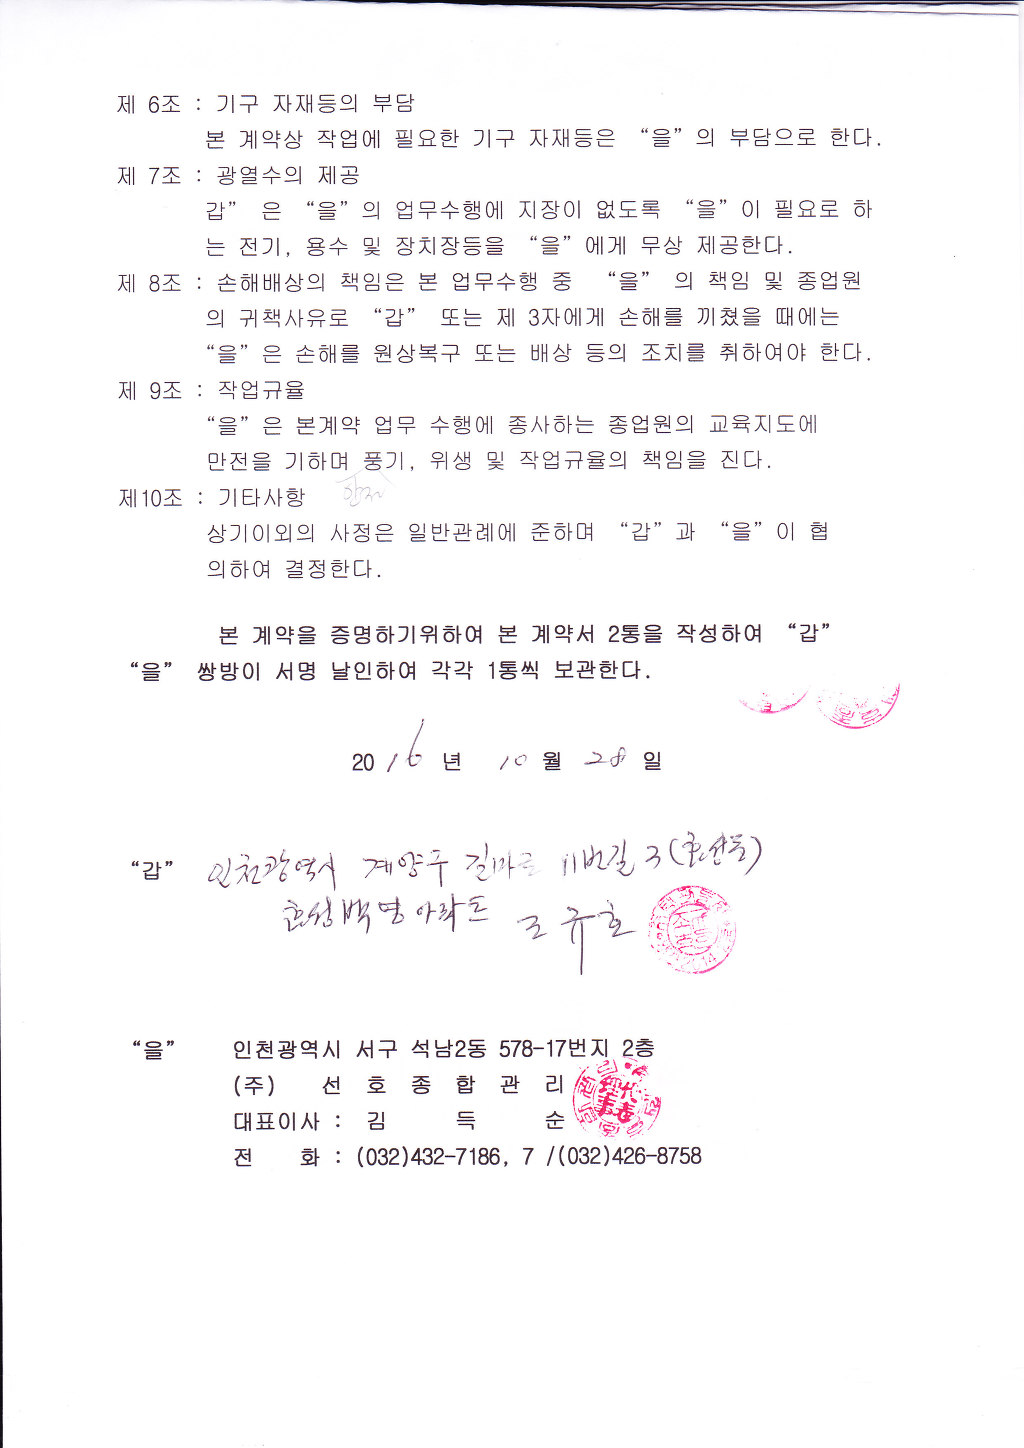 제 6조 : 기구 자재등의 부담
본 계약상 작업에 필요한 기구 자재등은 “을”의 부담으로 한다.
제 7조 : 광열수의 제공
갑” 은 “을”의 업무수행에 지장이 없도록 “을”이 필요로 하
는 전기, 용수 및 장치장등을 “을”에게 무상 제공한다.
제 8조 : 손해배상의 책임은 본 업무수행 중 “을” 의 책임 및 종업원
의 귀책사유로 “갑” 또는 제 3자에게 손해를 끼쳤을 때에는
“을”은 손해를 원상복구 또는 배상 등의 조치를 취하여야 한다.
제 9조 : 작업규율
“을”은 본계약 업무 수행에 종사하는 종업원의 교육지도에
만전을 기하며 풍기, 위생 및 작업규율의 책임을 진다.
제10조 : 기타사항
상기이외의 사정은 일반관례에 준하며 “갑”과 “을”이 협
의하여 결정한다.
본 계약을 증명하기위하여 본 계약서 2통을 작성하여 “갑”
“을” 쌍방이 서명 날인하여 각각 1통씩 보관한다.
2016년 10월 28일
“갑” 인천광역시 계양구 길마로 11번길 3
아파트 조규호
“을” 인천광역시 서구 석남2동 578-17번지 2층
(주) 선 호 종 합 관 리
대표이사 : 김 득 순
전 화 : (032)432-7186, 7 /(032)426-8758